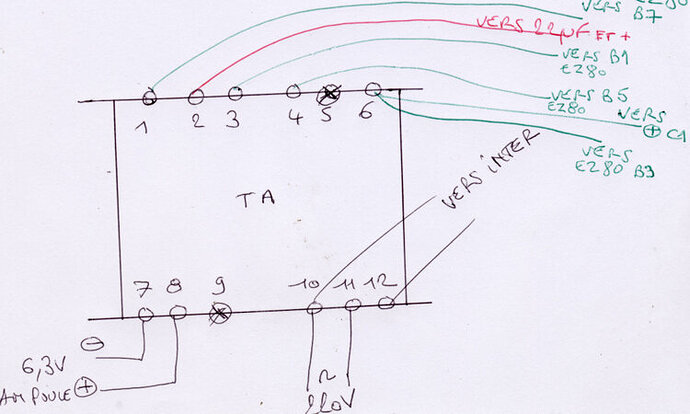 EZ80
VERS B7
VERS 22µF ET +
VERS B1
EZ80
VERS B5
EZ80
VERS
⊕ C1
VERS
EZ80 B3
1 2 3 4 5 6
TA
VERS INTER
7 8 9 10 11 12
⊖
6,3V
AMPOULE ⊕
~
220V